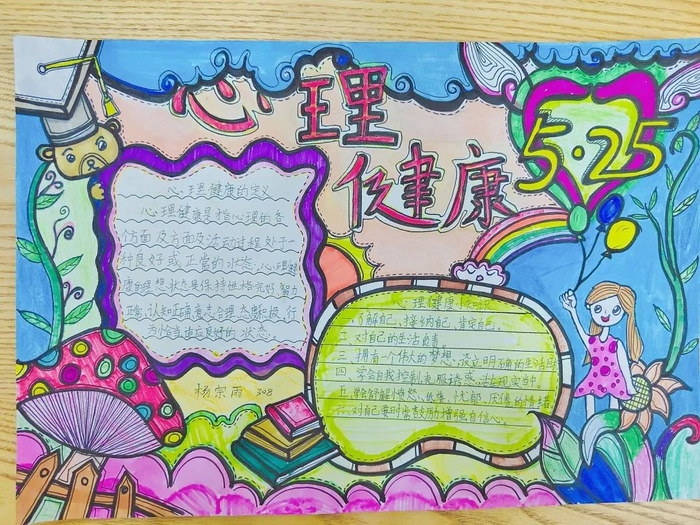 心理
健康
5·25
心理健康的定义
心理健康是指心理的各
个方面及方面及活动过程处于一
种良好或正常的状态。心理健
康的理想状态是保持性格完好、智力
正常、认知正确、意志合理、态度积极、行
为恰当、适应良好的状态
杨宗雨 308
心理健康
一、了解自己，接纳自己，肯定自己。
二、对自己的生活负责
三、拥有一个伟大的梦想、设立明确的生活目
四、学会自我控制，克服挫折，活在现实当中。
五、学会舒解愤怒、焦虑、忧郁、厌倦的情绪
六、对自己要时常鼓励增强自信心。